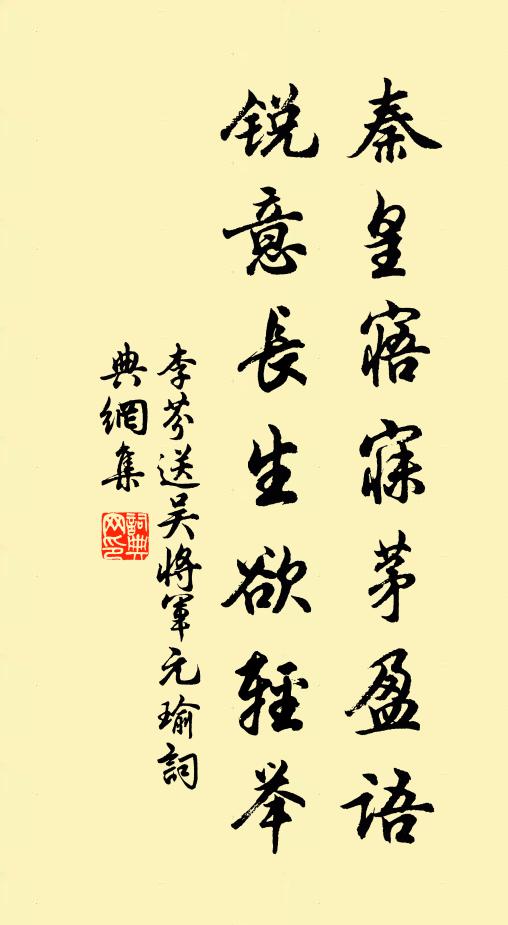 秦皇寤寐茅盈語
銳意長生欲輕举
李芬送吴將軍元瑜詞
典網集
詞典網印